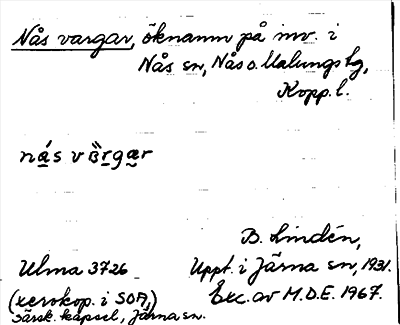 Nås vargar, öknamn på inv. i
Nås sn, Nås o. Malungs tg,
Kopp. l.
nás vàrgær
B. Lindén,
Ulma 3726 Uppt. i Järna sn, 1931.
(xerokop. i SOA,) Exc. av M.D.E. 1967.
särsk. kapsel, Järna sn.